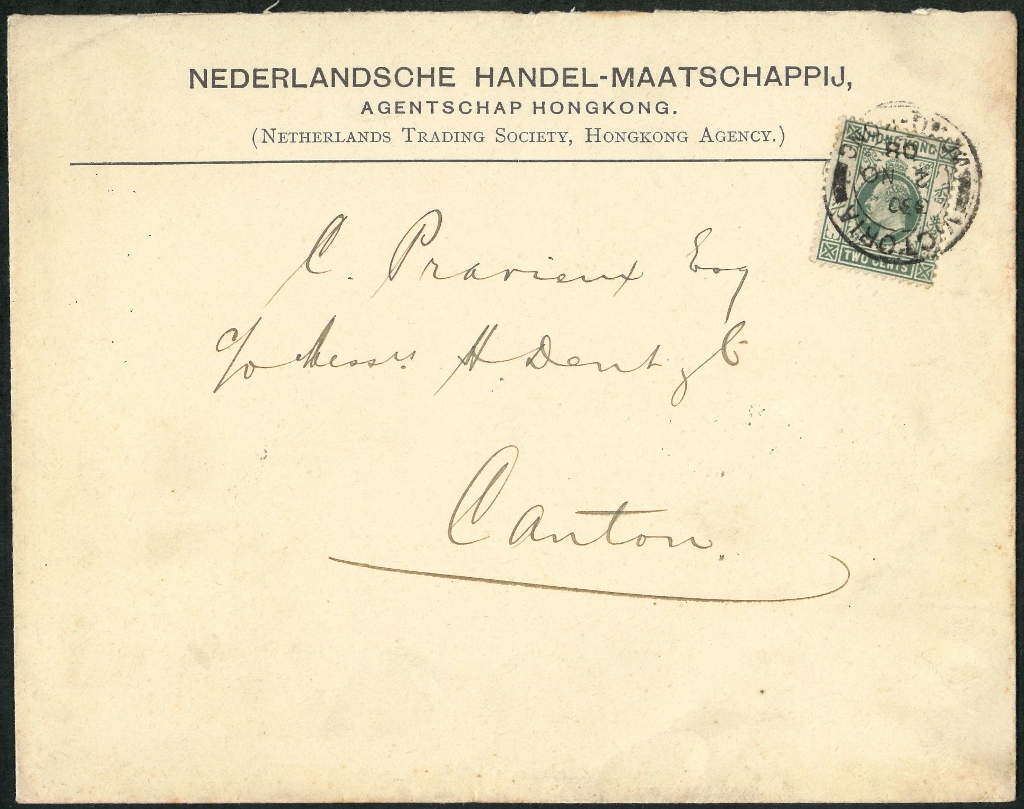 NEDERLANDSCHE HANDEL-MAATSCHAPPIJ,
AGENTSCHAP HONGKONG.
(NETHERLANDS TRADING SOCIETY, HONGKONG AGENCY.)
HONG KONG
TWO CENTS
VICTORIA
5 30
NO
08
C. Pravieux Esq
c/o Messrs. H. Dent & Co
Canton.